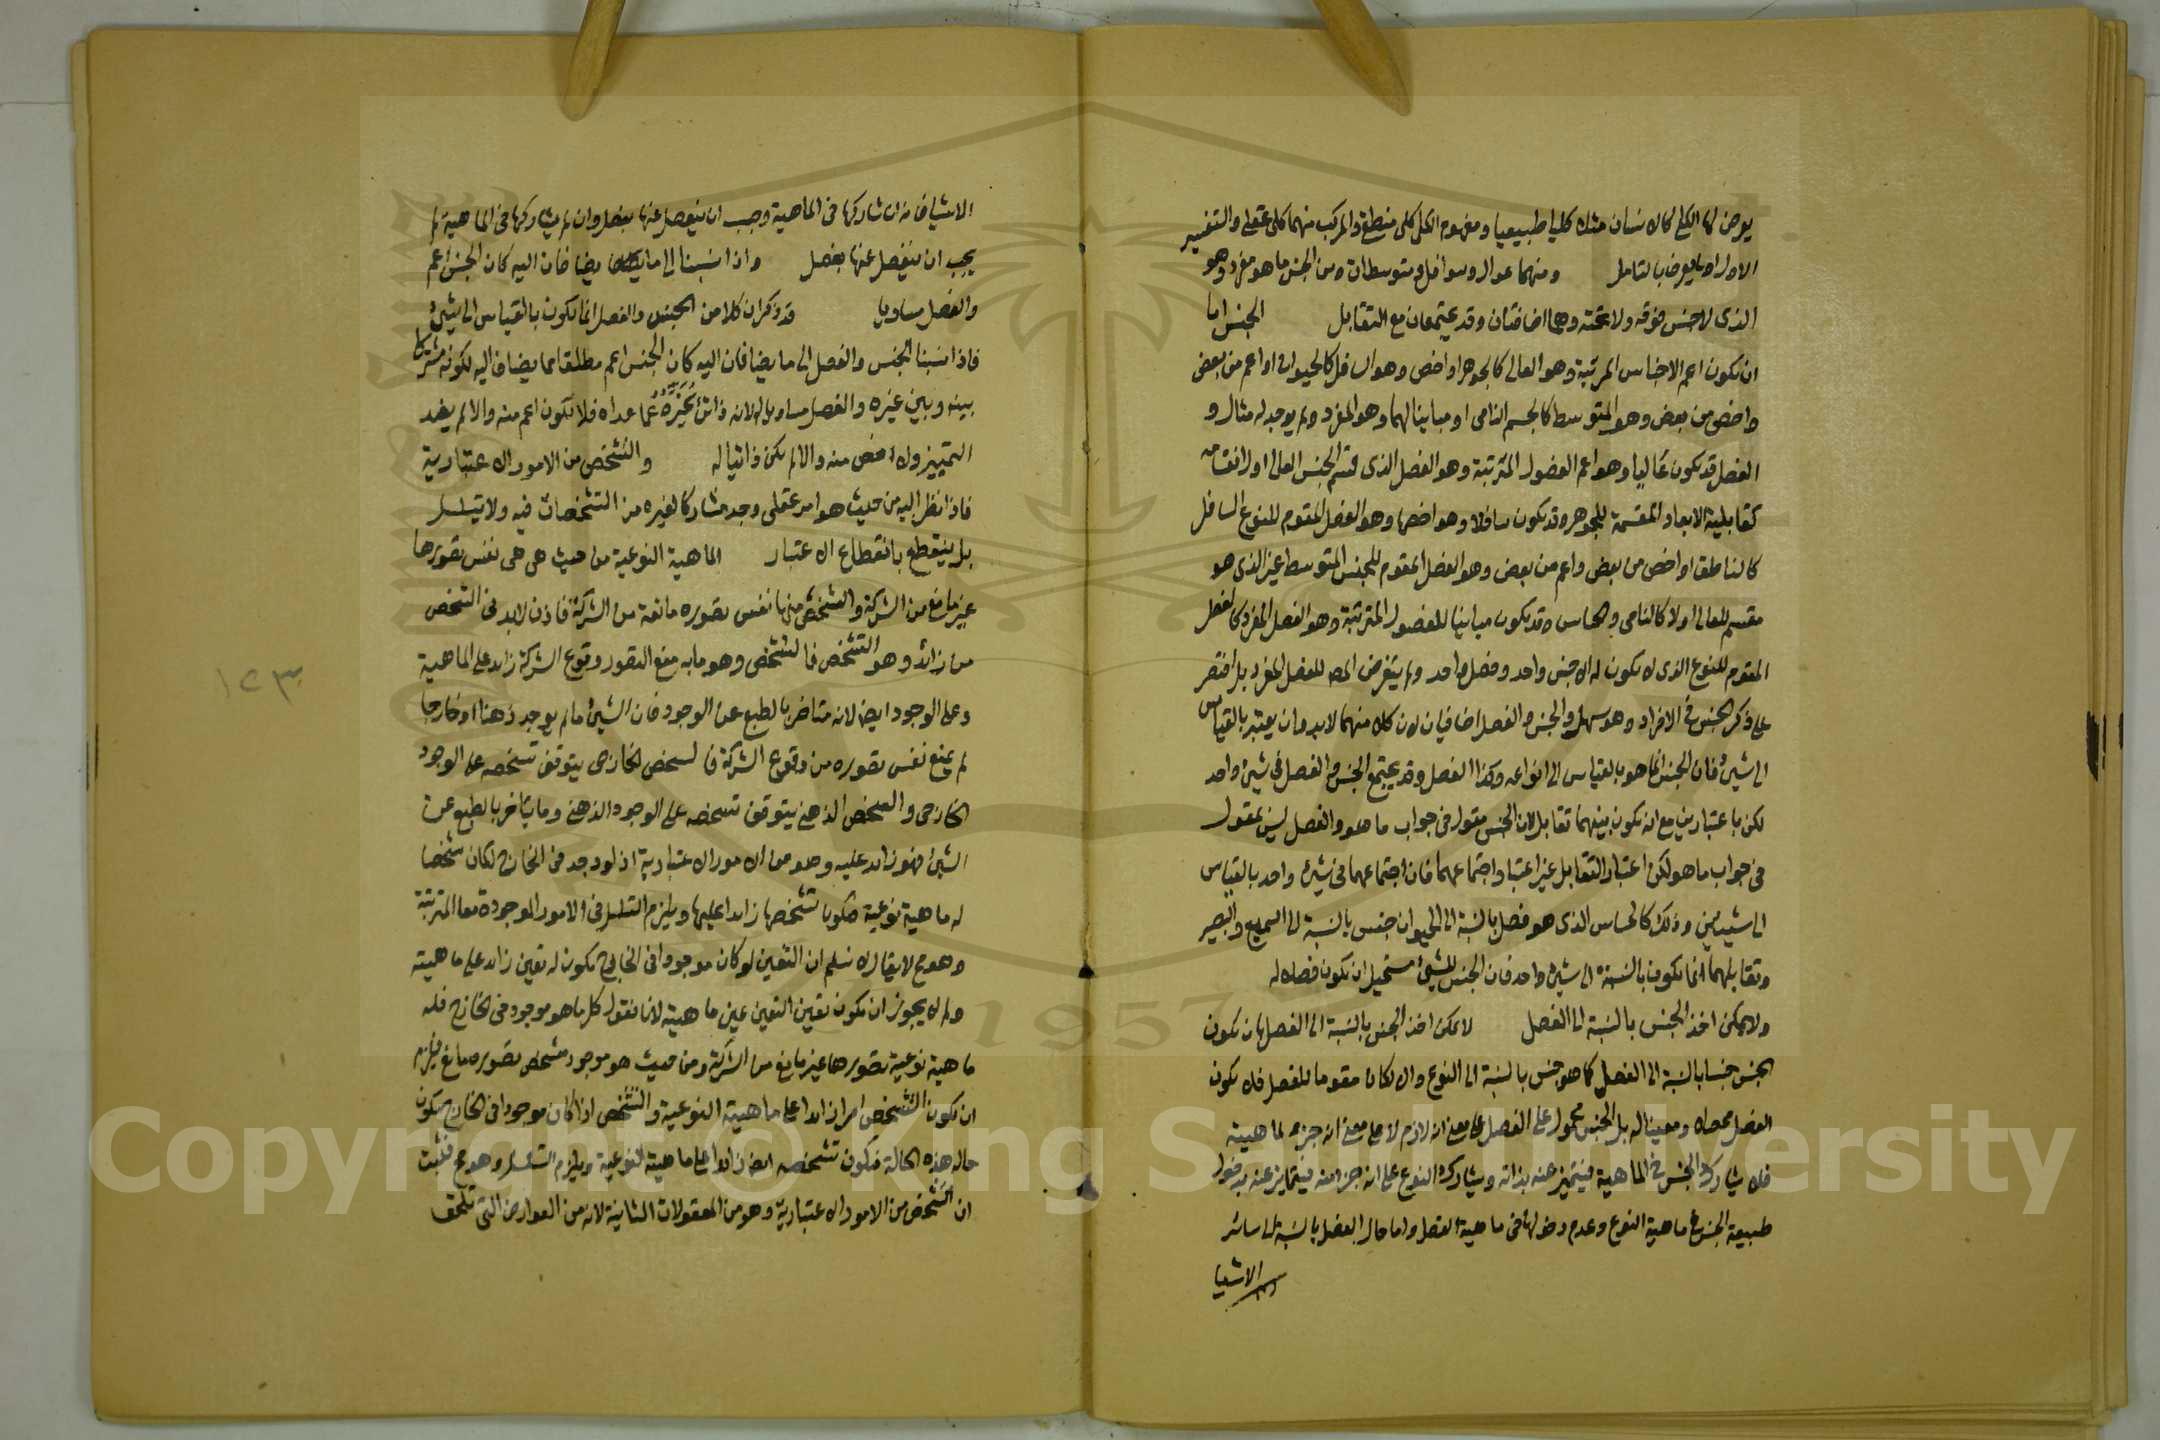 يعرض لها الكلي كالانسان مثلا كليا طبيعيا ومفهوم الكلي كلي منطقي والمركب منهما كلي عقلي والتفسير
الاول اما يعرض بالتامل ومنهما عوال وسوافل ومتوسطات ومن الجنس ما هو مفرد وهو
الذي لا جنس فوقه ولا تحته وهما اضافتان وقد يجتمعان مع التقابل الجنس اما
ان يكون اعم الاجناس المرتبة وهو العالي كالجوهر او اخص وهو السافل كالحيوان او اعم من بعض
واخص من بعض وهو المتوسط كالجسم النامي او مباينا لها وهو المفرد ولم يوجد له مثال و
الفصل قد يكون عاليا وهو اعم الفصول المترتبة وهو الفصل الذي قسم الجنس العالي اولا
كقابلية الابعاد المقسمة للجوهر وقد يكون سافلا وهو اخصها وهو الفصل المقوم للنوع السافل
كالناطق او اخص من بعض واعم من بعض وهو الفصل المقوم للجنس المتوسط غير الذي هو
مقسم للعالي اولا كالنامي والحساس وقد يكون مباينا للفصول المترتبة وهو الفصل المفرد كالفصل
المقوم للنوع الذي لا يكون له الا جنس واحد وفصل واحد ولم يتعرض المص للفصل المفرد بل اقتصر
على ذكر الجنس في الافراد وهو سهل والجنس والفصل اضافيان لان كلا منهما لابد وان يعتبر بالقياس
الى شيء فان الجنس انما هو بالقياس الى انواعه وكذا الفصل وقد يجتمع الجنس والفصل في شيء واحد
لكن باعتبارين مع انه يكون بينهما تقابل لان الجنس مقول في جواب ما هو والفصل ليس بمقول
في جواب ما هو لكن اعتبار التقابل غير اعتبار اجتماعهما فان اجتماعهما في شيء واحد بالقياس
الى شيئين وذلك كالحساس الذي هو فصل بالنسبة الى الحيوان جنس بالنسبة الى السميع والبصير
وتقابلهما انما يكون بالنسبة الى شيء واحد فان الجنس للشيء مستحيل ان يكون فصلا له
ولا يمكن اخذ الجنس بالنسبة الى الفصل لا يمكن اخذ الجنس بالنسبة الى الفصل بان يكون
الجنس جنسا بالنسبة الى الفصل كما هو جنس بالنسبة الى النوع والا لكان مقوما للفصل فلا يكون
الفصل محصلا ومعينا له بل الجنس محمول على الفصل على معنى انه لازم لا على معنى انه جزء لماهيته
فلا يشارك الجنس في الماهية فيتميز عنه بذاته ويشارك النوع على انه جزء منه فيتمايز عنه بدخول
طبيعة الجنس في ماهية النوع وعدم دخولها في ماهية الفصل واما حال الفصل بالنسبة الى سائر
الاشيا
الاشيا فانه ان شاركها في الماهية وجب ان ينفصل عنها بفصل وان لم يشاركها في الماهية لم
يجب ان ينفصل عنها بفصل واذا نسبنا الى ما يضافان اليه كان الجنس اعم
والفصل مساويا قد ذكر ان كلا من الجنس والفصل انما يكون بالقياس الى شيء
فاذا نسبنا الجنس والفصل الى ما يضافان اليه كان الجنس اعم مطلقا مما يضاف اليه لكونه مشتركا
بينه وبين غيره والفصل مساويا له لانه ذاتي يميزه عما عداه فلا يكون اعم منه والا لم يفد
التمييز ولا اخص منه والا لم يكن ذاتيا له والتشخص من الامور الاعتبارية
فاذا نظر اليه من حيث هو امر عقلي وجد مشاركا لغيره من التشخصات فيه ولا يتسلسل
بل ينقطع بانقطاع الاعتبار الماهية النوعية من حيث هي هي نفس تصورها
غير مانع من الشركة والشخص منها نفس تصوره مانعة من الشركة فاذن لابد في الشخص
من زائد وهو التشخص فالتشخص وهو ما به منع التصور وقوع الشركة زائد على الماهية
وعلى الوجود ايضا لانه متاخر بالطبع عن الوجود فان الشيء ما لم يوجد ذهنا او خارجا
لم يمنع نفس تصوره من وقوع الشركة فالشخص الخارجي يتوقف تشخصه على الوجود
الخارجي والشخص الذهني يتوقف تشخصه على الوجود الذهني وما يتاخر بالطبع عن
الشيء فهو زائد عليه وهو من الامور الاعتبارية اذ لو وجد في الخارج لكان شخصا
له ماهية نوعية فيكون تشخصها زائدا عليها ويلزم التسلسل في الامور الموجودة معا المترتبة
وهو مح لا يقال لا نسلم ان التعين لو كان موجودا في الخارج يكون له تعين زائد على ماهيته
ولم لا يجوز ان يكون تعين التعين عين ماهيته لانا نقول كل ما هو موجود في الخارج فله
ماهية نوعية تصورها غير مانع من الشركة ومن حيث هو موجود مشخص تصوره مانع فيلزم
ان يكون التشخص امرا زائدا على ماهيته النوعية والتشخص اذا كان موجودا في الخارج يكون
حاله هذه الحالة فيكون تشخصه ايضا زائدا على ماهيته النوعية ويلزم التسلسل وهو مح فثبت
ان التشخص من الامور الاعتبارية وهو من المعقولات الثانية لانه من العوارض التي تلحق
١٥٣
1957
Copyright © King Saud University